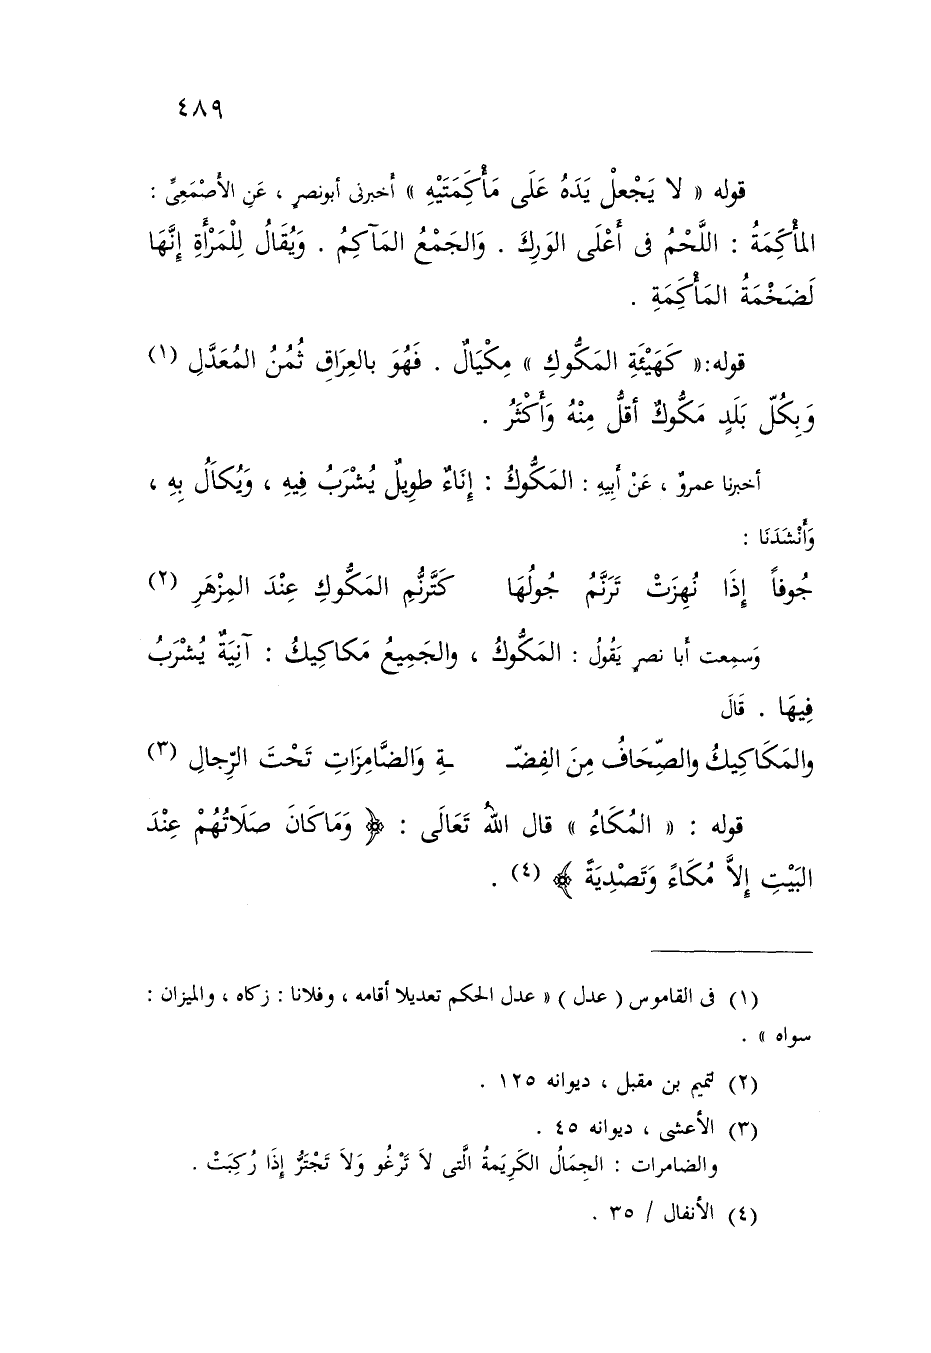 ٤٨٩
قوله « لا يَجْعلْ يَدَهُ عَلَى مَأْكَمَتَيْهِ » أخبرنى أبونصرٍ ، عَنِ الأصْمَعِىِّ :
المأْكَمَةُ : اللَّحْمُ فى أَعْلَى الوَرِكَ . وَالجَمْعُ المَآكِمُ . وَيُقَالُ لِلْمَرْأَةِ إِنَّهَا
لَضَخْمَةُ المَأْكَمَةِ .
قوله:« كَهَيْئَةِ المَكُّوكِ » مِكْيَالٌ . فَهُوَ بالعِرَاقِ ثُمُنُ المُعَدَّلِ (١)
وَبِكُلّ بَلَدٍ مَكُّوكٌ أقلُّ مِنْهُ وَأَكْثَرُ .
أخبرنا عمروٌ ، عَنْ أَبِيهِ : المَكُّوكُ : إِنَاءٌ طوِيلٌ يُشْرَبُ فِيهِ ، وَيُكَالُ بِهِ ،
وَأَنْشَدَنَا :
جُوفاً إِذَا نُهِزَتْ تَرَنَّمُ جُولُهَا كَتَّرنُّمِ المَكُّوكِ عِنْدَ المِزْهَرِ (٢)
وَسمِعت أبا نصرٍ يَقُولُ : المَكُّوكُ ، والجَمِيعُ مَكاكِيكُ : آنِيَةٌ يُشْرَبُ
فِيهَا . قَالَ
والمَكَاكِيكُ والصِّحَافُ مِنَ الفِضّـ ـةِ وَالضَّامِزَاتِ تَحْتَ الرِّجالِ (٣)
قوله : « المُكَاءُ » قال اللهُ تَعَالَى : ﴿ وَمَاكَانَ صَلَاتُهُمْ عِنْدَ
البَيْتِ إِلاَّ مُكَاءً وَتَصْدِيَةً ﴾ (٤) .
(١) فى القاموس ( عدل ) « عدل الحكم تعديلا أقامه ، وفلانا : زكاه ، والميزان :
سواه » .
(٢) لتميم بن مقبل ، ديوانه ١٢٥ .
(٣) الأعشى ، ديوانه ٤٥ .
والضامرات : الجِمَالُ الكَرِيمَةُ الَّتى لاَ تَرْغُو وَلاَ تَجْتَرُّ إِذَا رُكِبَتْ .
(٤) الأنفال / ٣٥ .